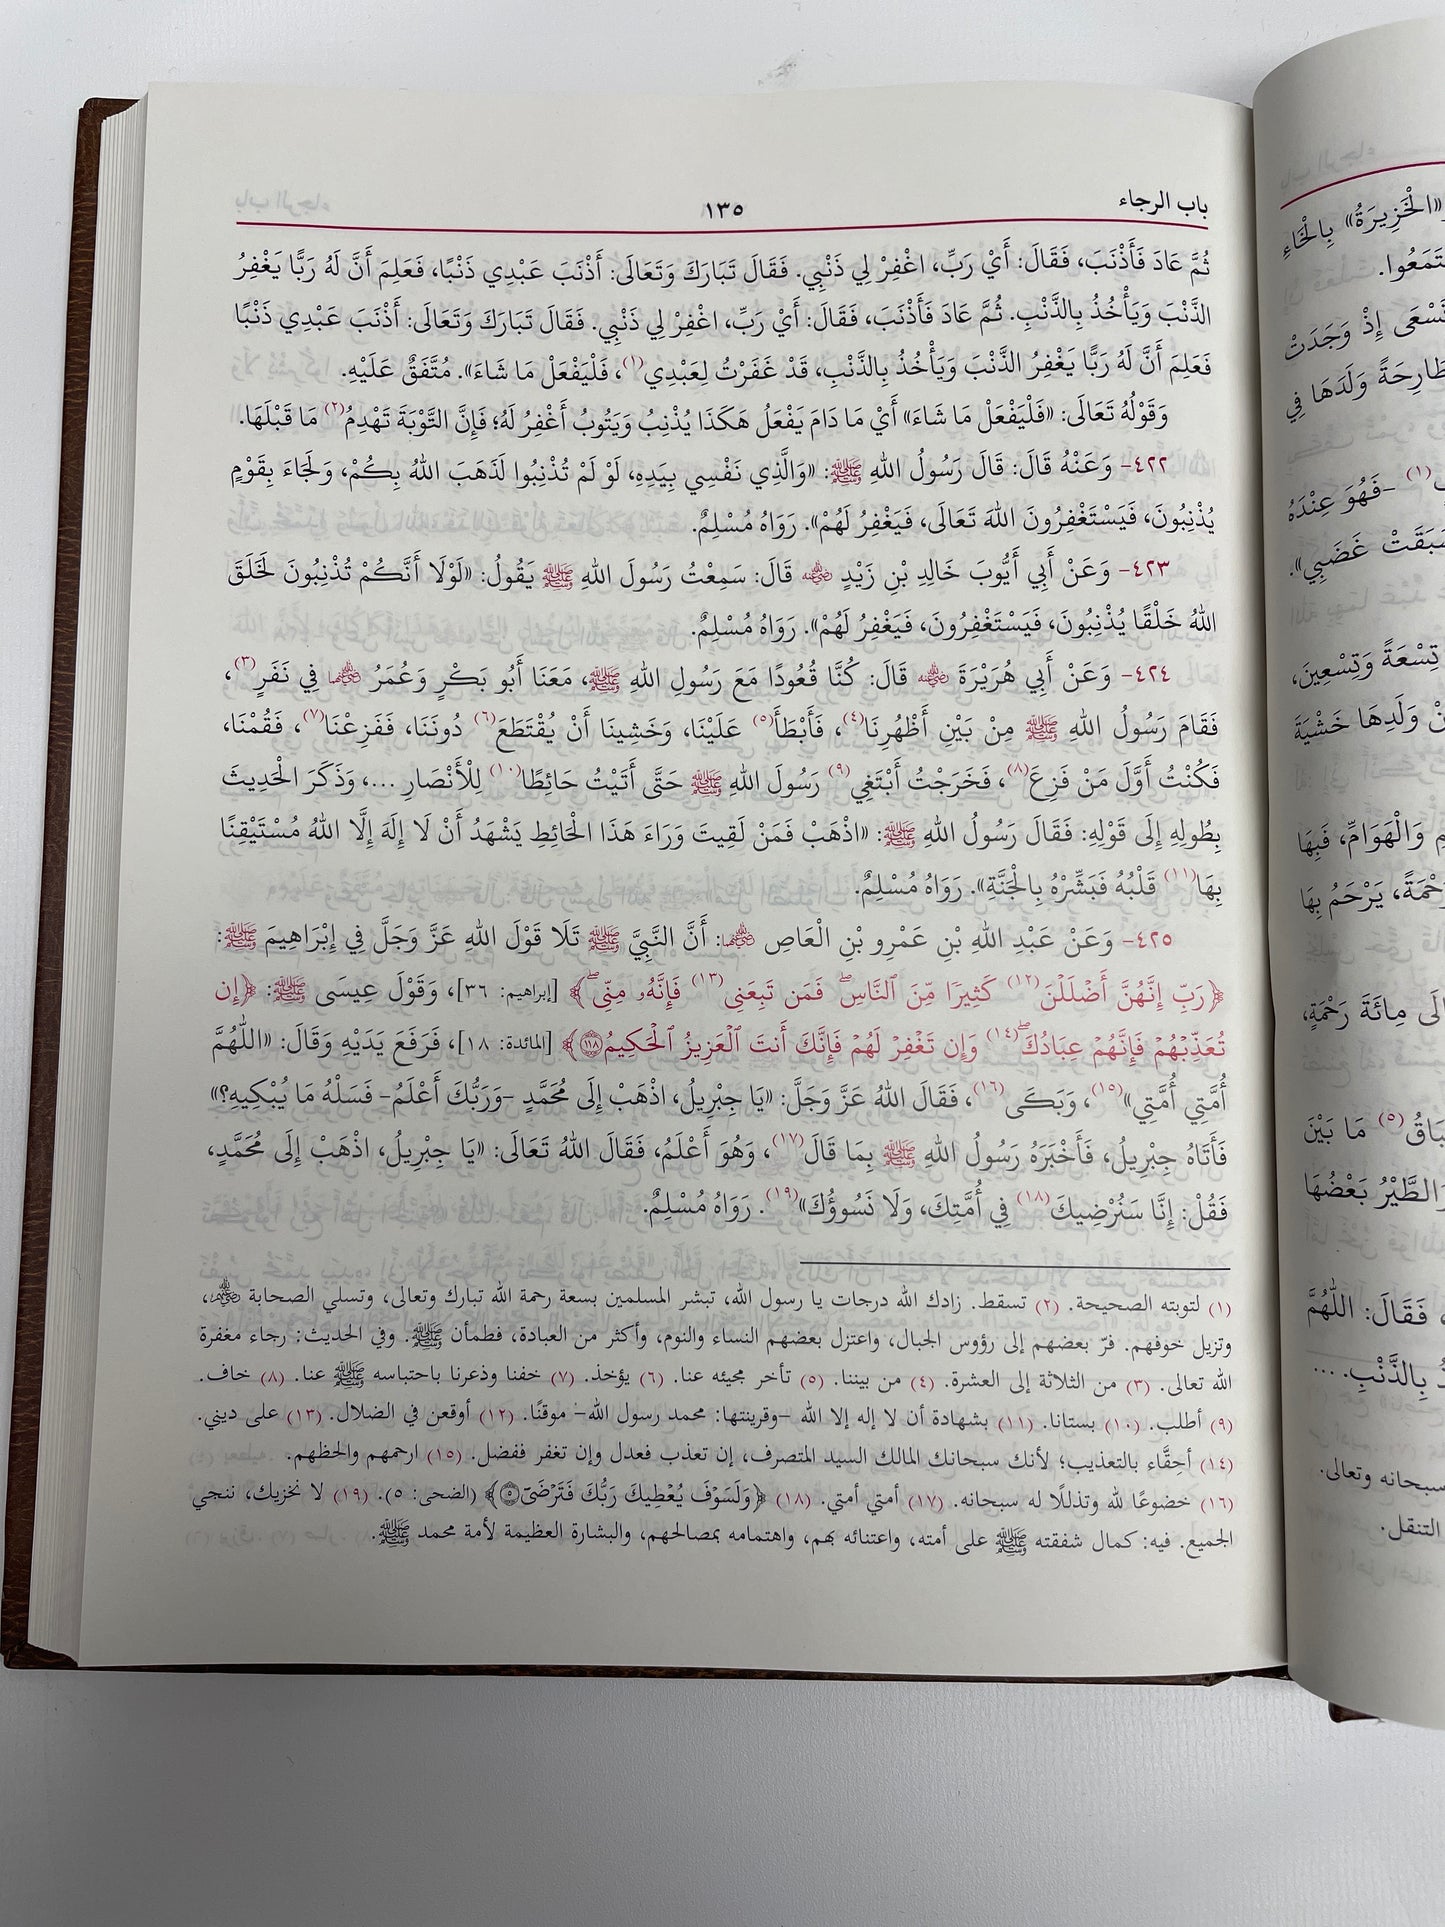 باب الرجاء
١٣٥
ثُمَّ عَادَ فَأَذْنَبَ، فَقَالَ: أَيْ رَبِّ، اغْفِرْ لِي ذَنْبِي. فَقَالَ تَبَارَكَ وَتَعَالَى: أَذْنَبَ عَبْدِي ذَنْبًا، فَعَلِمَ أَنَّ لَهُ رَبًّا يَغْفِرُ
الذَّنْبَ وَيَأْخُذُ بِالذَّنْبِ. ثُمَّ عَادَ فَأَذْنَبَ، فَقَالَ: أَيْ رَبِّ، اغْفِرْ لِي ذَنْبِي. فَقَالَ تَبَارَكَ وَتَعَالَى: أَذْنَبَ عَبْدِي ذَنْبًا
فَعَلِمَ أَنَّ لَهُ رَبًّا يَغْفِرُ الذَّنْبَ وَيَأْخُذُ بِالذَّنْبِ، قَدْ غَفَرْتُ لِعَبْدِي(١)، فَلْيَفْعَلْ مَا شَاءَ». مُتَّفَقٌ عَلَيْهِ.
وَقَوْلُهُ تَعَالَى: «فَلْيَفْعَلْ مَا شَاءَ» أَيْ مَا دَامَ يَفْعَلُ هَكَذَا يُذْنِبُ وَيَتُوبُ أَغْفِرُ لَهُ؛ فَإِنَّ التَّوْبَةَ تَهْدِمُ(٢) مَا قَبْلَهَا.
٤٢٢- وَعَنْهُ قَالَ: قَالَ رَسُولُ اللهِ ﷺ: «وَالَّذِي نَفْسِي بِيَدِهِ، لَوْ لَمْ تُذْنِبُوا لَذَهَبَ اللهُ بِكُمْ، وَلَجَاءَ بِقَوْمٍ
يُذْنِبُونَ، فَيَسْتَغْفِرُونَ اللهَ تَعَالَى، فَيَغْفِرُ لَهُمْ». رَوَاهُ مُسْلِمٌ.
٤٢٣- وَعَنْ أَبِي أَيُّوبَ خَالِدِ بْنِ زَيْدٍ رضي الله عنه قَالَ: سَمِعْتُ رَسُولَ اللهِ ﷺ يَقُولُ: «لَوْلَا أَنَّكُمْ تُذْنِبُونَ لَخَلَقَ
اللهُ خَلْقًا يُذْنِبُونَ، فَيَسْتَغْفِرُونَ، فَيَغْفِرُ لَهُمْ». رَوَاهُ مُسْلِمٌ.
٤٢٤- وَعَنْ أَبِي هُرَيْرَةَ رضي الله عنه قَالَ: كُنَّا قُعُودًا مَعَ رَسُولِ اللهِ ﷺ، مَعَنَا أَبُو بَكْرٍ وَعُمَرُ رضي الله عنهما فِي نَفَرٍ(٣)،
فَقَامَ رَسُولُ اللهِ ﷺ مِنْ بَيْنِ أَظْهُرِنَا(٤)، فَأَبْطَأَ(٥) عَلَيْنَا، وَخَشِينَا أَنْ يُقْتَطَعَ(٦) دُونَنَا، فَفَزِعْنَا(٧)، فَقُمْنَا،
فَكُنْتُ أَوَّلَ مَنْ فَزِعَ(٨)، فَخَرَجْتُ أَبْتَغِي(٩) رَسُولَ اللهِ ﷺ حَتَّى أَتَيْتُ حَائِطًا(١٠) لِلْأَنْصَارِ ...، وَذَكَرَ الْحَدِيثَ
بِطُولِهِ إِلَى قَوْلِهِ: فَقَالَ رَسُولُ اللهِ ﷺ: «اذْهَبْ فَمَنْ لَقِيتَ وَرَاءَ هَذَا الْحَائِطِ يَشْهَدُ أَنْ لَا إِلَهَ إِلَّا اللهُ مُسْتَيْقِنًا
بِهَا(١١) قَلْبُهُ فَبَشِّرْهُ بِالْجَنَّةِ». رَوَاهُ مُسْلِمٌ.
٤٢٥- وَعَنْ عَبْدِ اللهِ بْنِ عَمْرِو بْنِ الْعَاصِ رضي الله عنهما: أَنَّ النَّبِيَّ ﷺ تَلَا قَوْلَ اللهِ عَزَّ وَجَلَّ فِي إِبْرَاهِيمَ ﷺ:
﴿رَبِّ إِنَّهُنَّ أَضْلَلْنَ(١٢) كَثِيرًا مِّنَ ٱلنَّاسِۖ فَمَن تَبِعَنِي(١٣) فَإِنَّهُۥ مِنِّيۖ﴾ [إبراهيم: ٣٦]، وَقَوْلَ عِيسَى ﷺ: ﴿إِن
تُعَذِّبْهُمْ فَإِنَّهُمْ عِبَادُكَۖ(١٤) وَإِن تَغْفِرْ لَهُمْ فَإِنَّكَ أَنتَ ٱلْعَزِيزُ ٱلْحَكِيمُ ١١٨﴾ [المائدة: ١١٨]، فَرَفَعَ يَدَيْهِ وَقَالَ: «اللَّهُمَّ
أُمَّتِي أُمَّتِي»(١٥)، وَبَكَى(١٦)، فَقَالَ اللهُ عَزَّ وَجَلَّ: «يَا جِبْرِيلُ، اذْهَبْ إِلَى مُحَمَّدٍ -وَرَبُّكَ أَعْلَمُ- فَسَلْهُ مَا يُبْكِيهِ؟»
فَأَتَاهُ جِبْرِيلُ، فَأَخْبَرَهُ رَسُولُ اللهِ ﷺ بِمَا قَالَ(١٧)، وَهُوَ أَعْلَمُ، فَقَالَ اللهُ تَعَالَى: «يَا جِبْرِيلُ، اذْهَبْ إِلَى مُحَمَّدٍ،
فَقُلْ: إِنَّا سَنُرْضِيكَ(١٨) فِي أُمَّتِكَ، وَلَا نَسُوؤُكَ»(١٩). رَوَاهُ مُسْلِمٌ.
(١) لتوبته الصحيحة. (٢) تسقط. زادك الله درجات يا رسول الله، تبشر المسلمين بسعة رحمة الله تبارك وتعالى، وتسلي الصحابة رضي الله عنهم،
وتزيل خوفهم. فرّ بعضهم إلى رؤوس الجبال، واعتزل بعضهم النساء والنوم، وأكثر من العبادة، فطمأن ﷺ. وفي الحديث: رجاء مغفرة
الله تعالى. (٣) من الثلاثة إلى العشرة. (٤) من بيننا. (٥) تأخر مجيئه عنا. (٦) يؤخذ. (٧) خفنا وذعرنا باحتباسه ﷺ عنا. (٨) خاف.
(٩) أطلب. (١٠) بستانا. (١١) بشهادة أن لا إله إلا الله -وقرينتها: محمد رسول الله- موقنًا. (١٢) أوقعن في الضلال. (١٣) على ديني.
(١٤) أحقَّاء بالتعذيب؛ لأنك سبحانك المالك السيد المتصرف، إن تعذب فعدل وإن تغفر ففضل. (١٥) ارحمهم والحظهم.
(١٦) خضوعًا لله وتذللًا له سبحانه. (١٧) أمتي أمتي. (١٨) ﴿وَلَسَوْفَ يُعْطِيكَ رَبُّكَ فَتَرْضَىٰٓ ٥﴾ (الضحى: ٥). (١٩) لا نخزيك، ننجي
الجميع. فيه: كمال شفقته ﷺ على أمته، واعتنائه بهم، واهتمامه بمصالحهم، والبشارة العظيمة لأمة محمد ﷺ.
«الْخَزِيرَةُ» بِالْخَاءِ
تَسْعَى إِذْ وَجَدَتْ
وَلَدَهَا فِي
-فَهُوَ عِنْدَهُ
سَبَقَتْ غَضَبِي».
تِسْعَةً وَتِسْعِينَ،
وَلَدِهَا خَشْيَةَ
وَالْهَوَامِّ، فَبِهَا
يَرْحَمُ بِهَا
مِائَةَ رَحْمَةٍ،
مَا بَيْنَ
وَالطَّيْرُ بَعْضُهَا
فَقَالَ: اللَّهُمَّ
بِالذَّنْبِ. ...
سبحانه وتعالى.
التنقل.